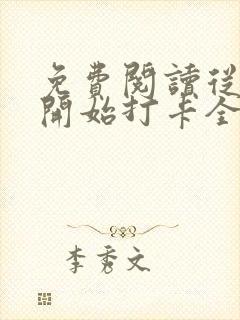 免費閱讀從
開始打卡全
李秀文